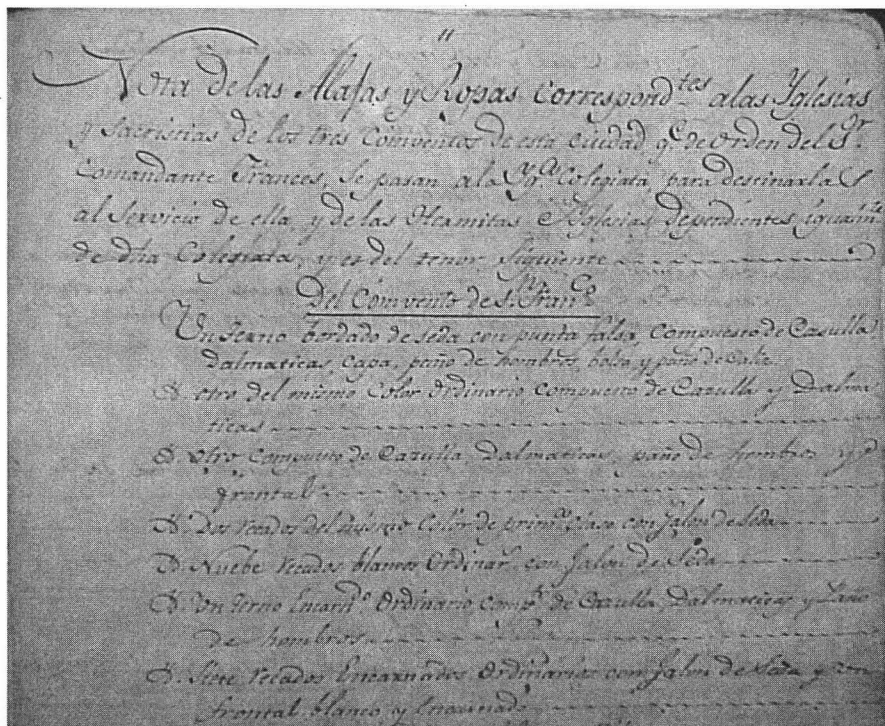 11
Nota de las Alajas y Ropas correspond.tes a las Yglesias
y Sacristias de los tres Comventos de esta ciudad, q.e de orden del S.r
Comandante Frances, se pasan a la Yg.a Colegiata, para destinarlas
al servicio de ella, y de las Hermitas é Yglesias dependientes igualm.te
de dha Colegiata, y es del tenor siguiente
Del Comvento de S. Fran.co
Un terno bordado de seda con punta falsa, compuesto de Casulla
Dalmaticas, capa, paño de hombros, bolsa y paño de caliz
otro del mismo color ordinario compuesto de Cazulla y Dalma
ticas
otro compuesto de Cazulla, Dalmaticas, paño de hombros y
frontal
Dos recados del mismo Color de prim.a clase con falon de seda
Nuebe recados blancos Ordinar.s con falon de Seda
Un terno Encarn.o Ordinario comp.to de Cazulla, Dalmaticas y Paño
de hombros
Siete recados Encarnados Ordinarios con falon de seda y un
frontal blanco y Encarnado